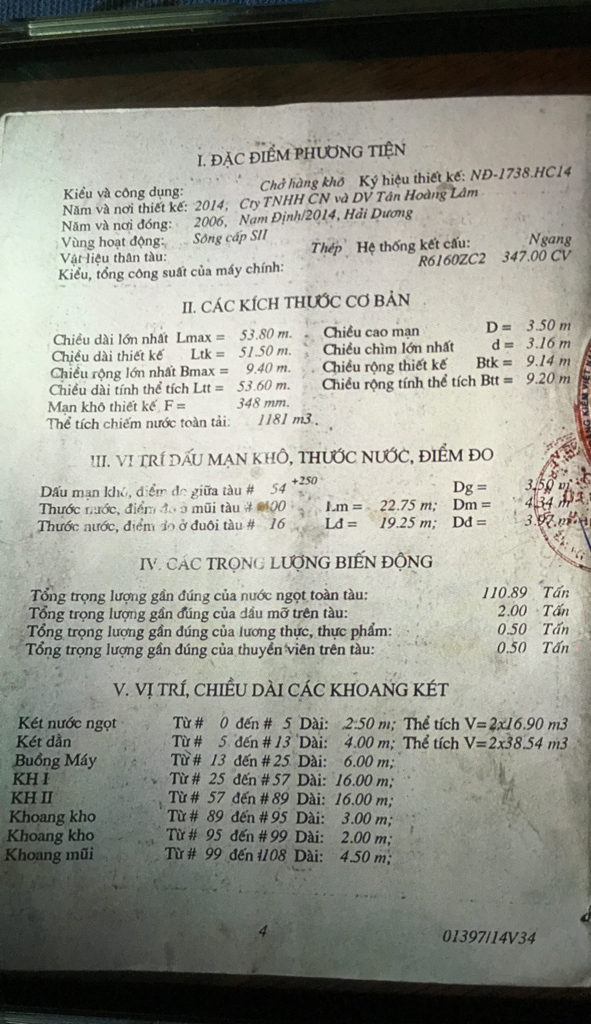 I. ĐẶC ĐIỂM PHƯƠNG TIỆN
Kiểu và công dụng: Chở hàng khô Ký hiệu thiết kế: NĐ-1738.HC14
Năm và nơi thiết kế: 2014, Cty TNHH CN và DV Tân Hoàng Lâm
Năm và nơi đóng: 2006, Nam Định/2014, Hải Dương
Vùng hoạt động: Sông cấp SII
Vật liệu thân tàu: Thép Hệ thống kết cấu: Ngang
Kiểu, tổng công suất của máy chính: R6160ZC2 347.00 CV
II. CÁC KÍCH THƯỚC CƠ BẢN
Chiều dài lớn nhất Lmax = 53.80 m. Chiều cao mạn D = 3.50 m
Chiều dài thiết kế Ltk = 51.50 m. Chiều chìm lớn nhất d = 3.16 m
Chiều rộng lớn nhất Bmax = 9.40 m. Chiều rộng thiết kế Btk = 9.14 m
Chiều dài tính thể tích Ltt = 53.60 m. Chiều rộng tính thể tích Btt = 9.20 m
Mạn khô thiết kế F = 348 mm.
Thể tích chiếm nước toàn tải: 1181 m3.
III. VỊ TRÍ DẤU MẠN KHÔ, THƯỚC NƯỚC, ĐIỂM ĐO
Dấu mạn khô, điểm đo giữa tàu # 54 +250 Dg = 3.50 m
Thước nước, điểm đo ở mũi tàu # 100 Lm = 22.75 m; Dm = 4.34 m
Thước nước, điểm đo ở đuôi tàu # 16 Lđ = 19.25 m; Dđ = m
IV. CÁC TRỌNG LƯỢNG BIẾN ĐỘNG
Tổng trọng lượng gần đúng của nước ngọt toàn tàu: 110.89 Tấn
Tổng trọng lượng gần đúng của dầu mỡ trên tàu: 2.00 Tấn
Tổng trọng lượng gần đúng của lương thực, thực phẩm: 0.50 Tấn
Tổng trọng lượng gần đúng của thuyền viên trên tàu: 0.50 Tấn
V. VỊ TRÍ, CHIỀU DÀI CÁC KHOANG KÉT
Két nước ngọt Từ # 0 đến # 5 Dài: 2.50 m; Thể tích V=2x16.90 m3
Két dằn Từ # 5 đến # 13 Dài: 4.00 m; Thể tích V=2x38.54 m3
Buồng Máy Từ # 13 đến # 25 Dài: 6.00 m;
KH I Từ # 25 đến # 57 Dài: 16.00 m;
KH II Từ # 57 đến # 89 Dài: 16.00 m;
Khoang kho Từ # 89 đến # 95 Dài: 3.00 m;
Khoang kho Từ # 95 đến # 99 Dài: 2.00 m;
Khoang mũi Từ # 99 đến #108 Dài: 4.50 m;
4
01397/14V34